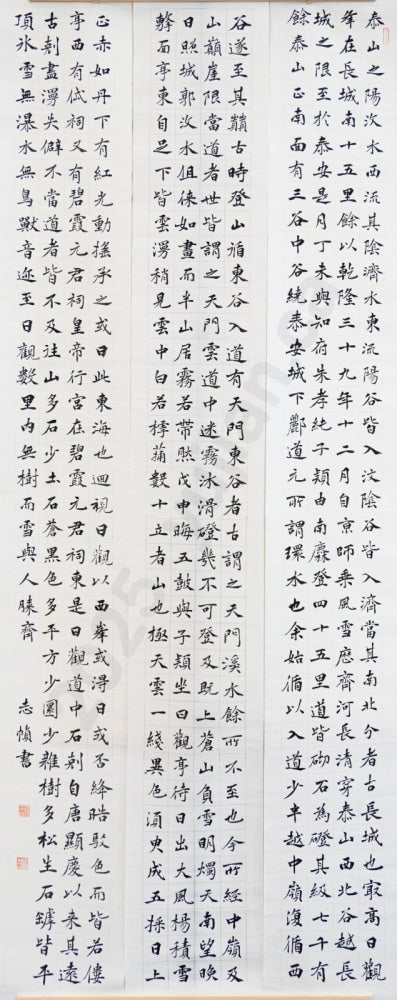 泰山之陽汶水西流其陰濟水東流陽谷皆入汶陰谷皆入濟當其南北分者古長城也最高日觀
峯在長城南十五里餘以乾隆三十九年十二月自京師乘風雪歷齊河長清穿泰山西北谷越長
城之限至於泰安是月丁未與知府朱孝純子潁由南麓登四十五里道皆砌石為磴其級七千有
餘泰山正南面有三谷中谷繞泰安城下酈道元所謂環水也余始循以入道少半越中嶺復循西
谷遂至其巔古時登山循東谷入道有天門東谷者古謂之天門溪水餘所不至也今所經中嶺及
山巔崖限當道者世皆謂之天門雲道中迷霧冰滑磴幾不可登及既上蒼山負雪明燭天南望晚
日照城郭汶水徂徠如畫而半山居霧若帶然戊申晦五鼓與子潁坐日觀亭待日出大風揚積雪
擊面亭東自足下皆雲漫稍見雲中白若樗蒱數十立者山也極天雲一綫異色須臾成五採日上
正赤如丹下有紅光動搖承之或曰此東海也迴視日觀以西峯或得日或否絳皓駁色而皆若僂
亭西有岱祠又有碧霞元君祠皇帝行宮在碧霞元君祠東是日觀道中石刻自唐顯慶以來其遠
古刻盡漫失僻不當道者皆不及往山多石少土石蒼黑色多平方少圜少雜樹多松生石罅皆平
頂冰雪無瀑水無鳥獸音迹至日觀數里內無樹而雪與人膝齊
志慎書